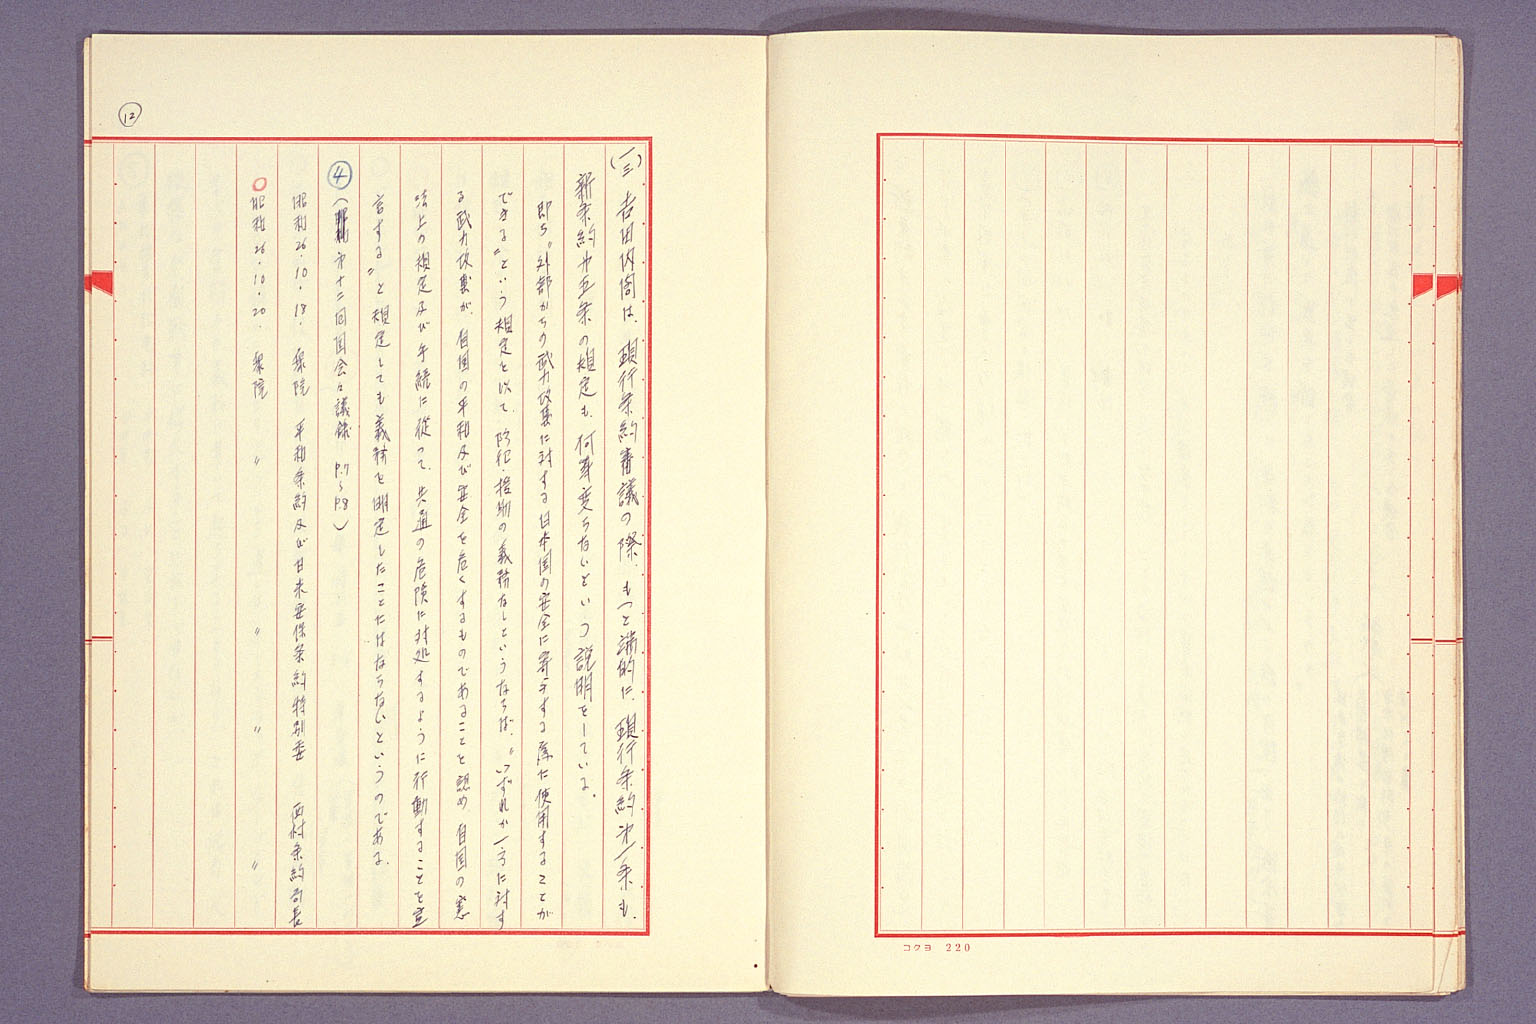 (三) 吉田内閣は、現行条約審議の際、もつと端的に、現行条約第一条も、
新条約第五条の規定も、何等変らないといつ説明をしている。
即ち"外部からの武力攻撃に対する日本国の安全に寄与する為に使用することが
できる"という規定を以て、防犯・援助の義務なしというならば、"いずれか一方に対す
る武力攻撃が、自国の平和及び安全を危くするものであることを認め 自国の憲
法上の規定及び手続に従つて、共通の危険に対処するように行動することを宣
言する"と規定しても義務を明定したことにはならないというのである。
④ (第十二回国会々議録 P.7〜P.8)
昭和26.10.18. 衆院 平和条約及び日米安保条約特別委 西村条約局長
○昭和26.10.20. 衆院 〃 〃 〃 〃
12
コクヨ 220